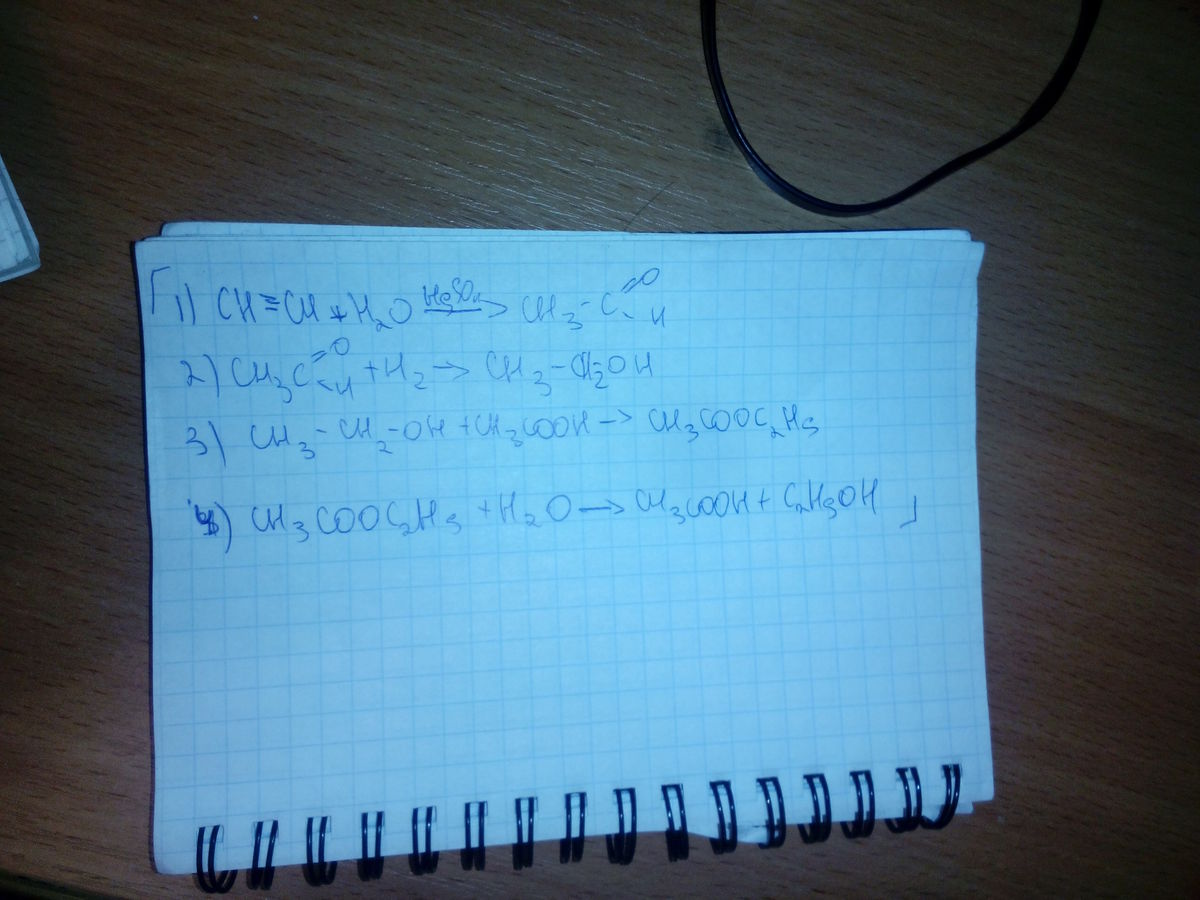 1) CH≡CH + H₂O HgSO₄→ CH₃-C=O-H
2) CH₃C=O-H + H₂ → CH₃-CH₂OH
3) CH₃-CH₂-OH + CH₃COOH → CH₃COOC₂H₅
4) CH₃COOC₂H₅ + H₂O → CH₃COOH + C₂H₅OH